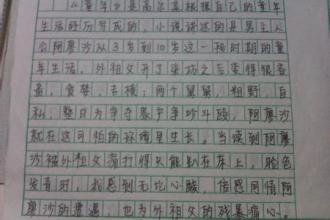 《童年》是高尔基根据自己的童年
生活经历写成的，小说讲述的是男主人
公阿廖沙从3岁到10岁这一段时期的童
年生活，外祖父开了染坊之后变得很吝
啬，贪婪，专横；两个舅舅，粗野，自
私，整日为争夺家产争吵斗殴，阿廖沙
就在这可怕的环境里生长，当读到阿廖
沙被外祖父毒打得只能趴在床上，脸色
发青时，我感到无比心酸，倍感同情阿
廖沙的遭遇，也为外祖父的残暴痛心